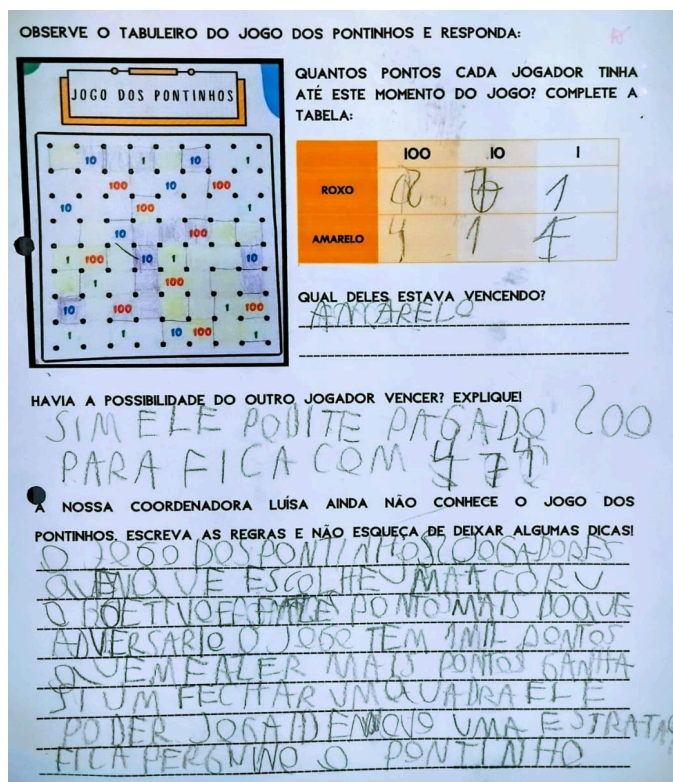 OBSERVE O TABULEIRO DO JOGO DOS PONTINHOS E RESPONDA:
JOGO DOS PONTINHOS
10 10 1
100 10 100
10 100 1
10 100
1 100 10 1 10
1 100
10 100 1 100
1 1 10 100 1
QUANTOS PONTOS CADA JOGADOR TINHA
ATÉ ESTE MOMENTO DO JOGO? COMPLETE A
TABELA:
100 10 1
ROXO 1
AMARELO 4 1
QUAL DELES ESTAVA VENCENDO?
AMARELO
HAVIA A POSSIBILIDADE DO OUTRO JOGADOR VENCER? EXPLIQUE!
SIM ELE PODITE PAGADO 200
PARA FICA COM
A NOSSA COORDENADORA LUÍSA AINDA NÃO CONHECE O JOGO DOS
PONTINHOS. ESCREVA AS REGRAS E NÃO ESQUEÇA DE DEIXAR ALGUMAS DICAS!
O JOGO DOS PONTINHOS JOGADORES
QUE ESCOLHE UMA COR U
O PONTO MAIS DOQUE
ADVERSARIO O JOGO TEM 1MIL PONTOS
QUEM FALER MAIS PONTOS GANHA
SI UM FECHAR UM QUADRA ELE
PODER JOGA DENOVO UMA ESTRATA
FICA O PONTINHO